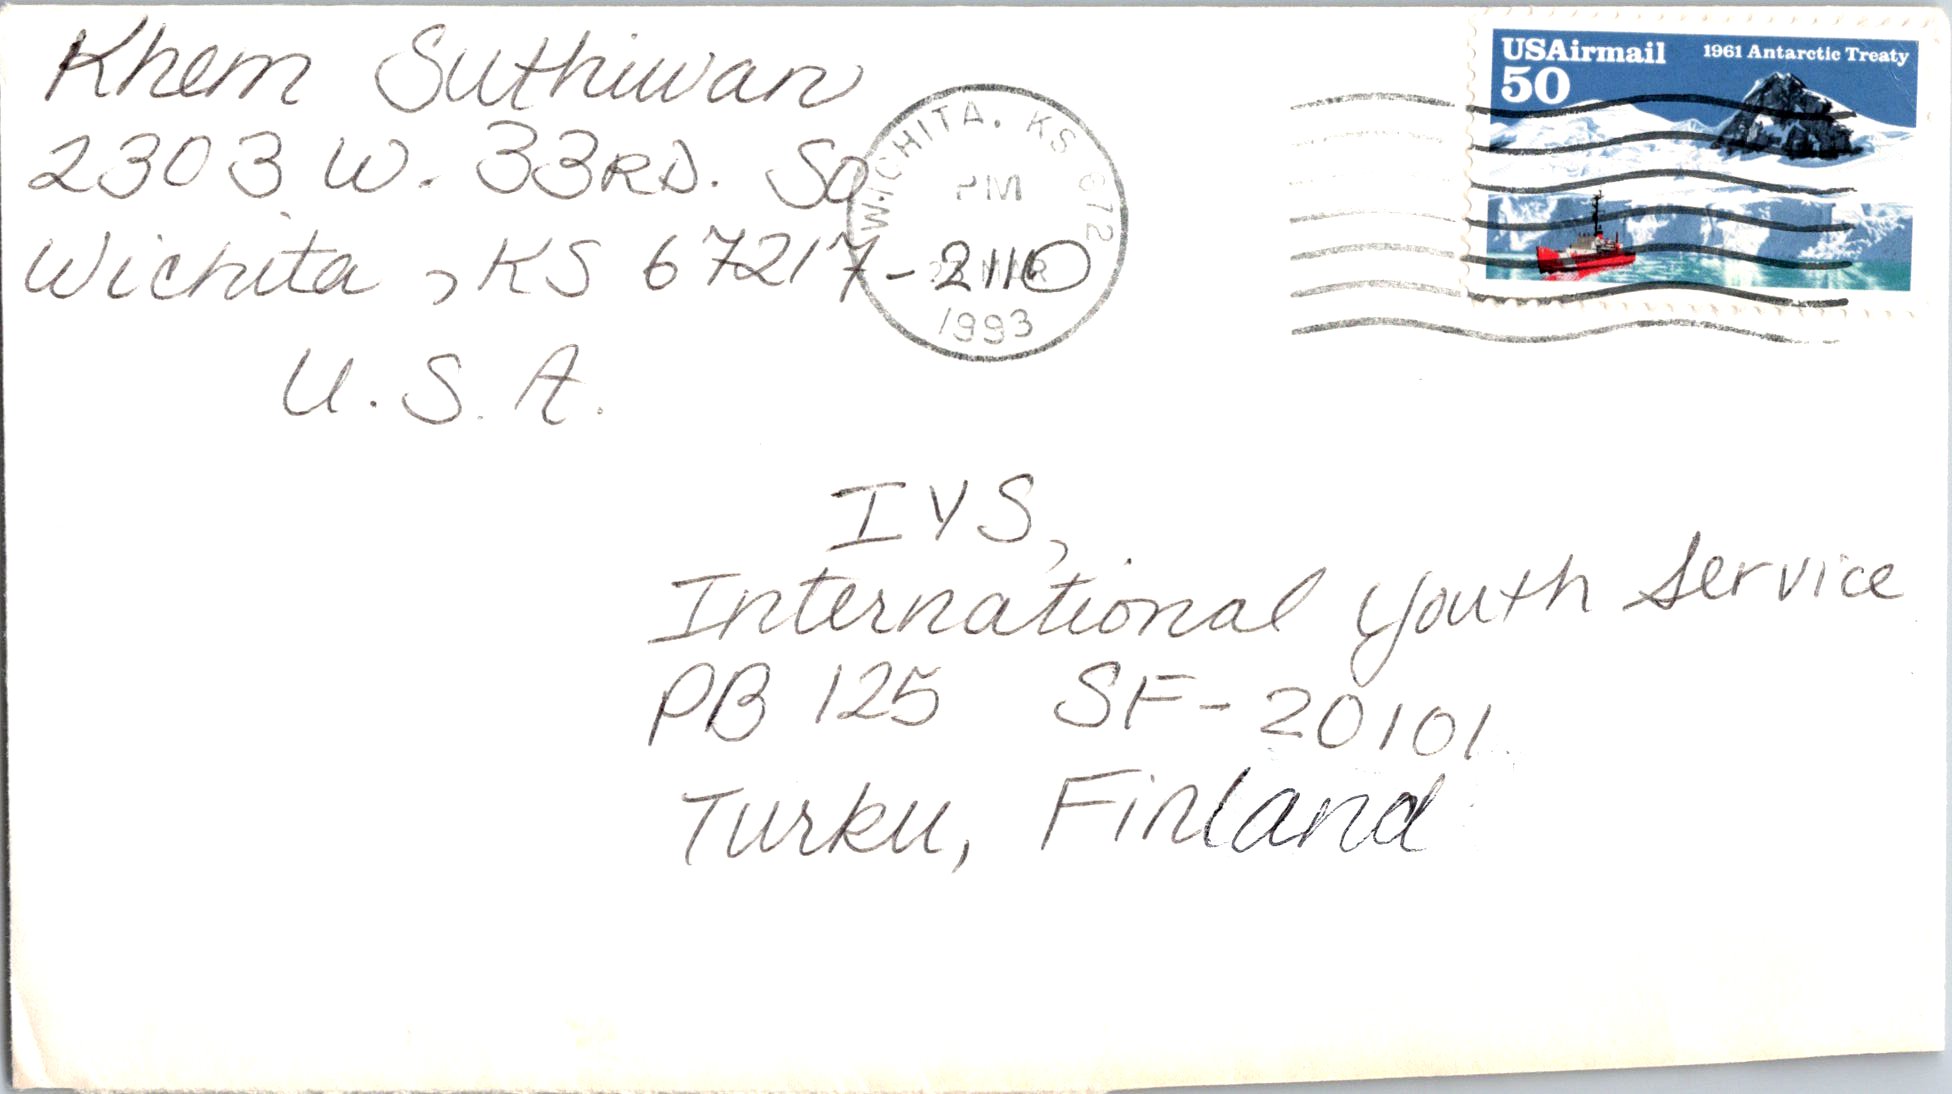 Khem Suthiwan
2303 W. 33RD. So
Wichita, KS 67217-2110
U.S.A.
WICHITA, KS 672
PM
MAR
1993
USAirmail
50
1961 Antarctic Treaty
IYS,
International Youth Service
PB 125 SF-20101
Turku, Finland